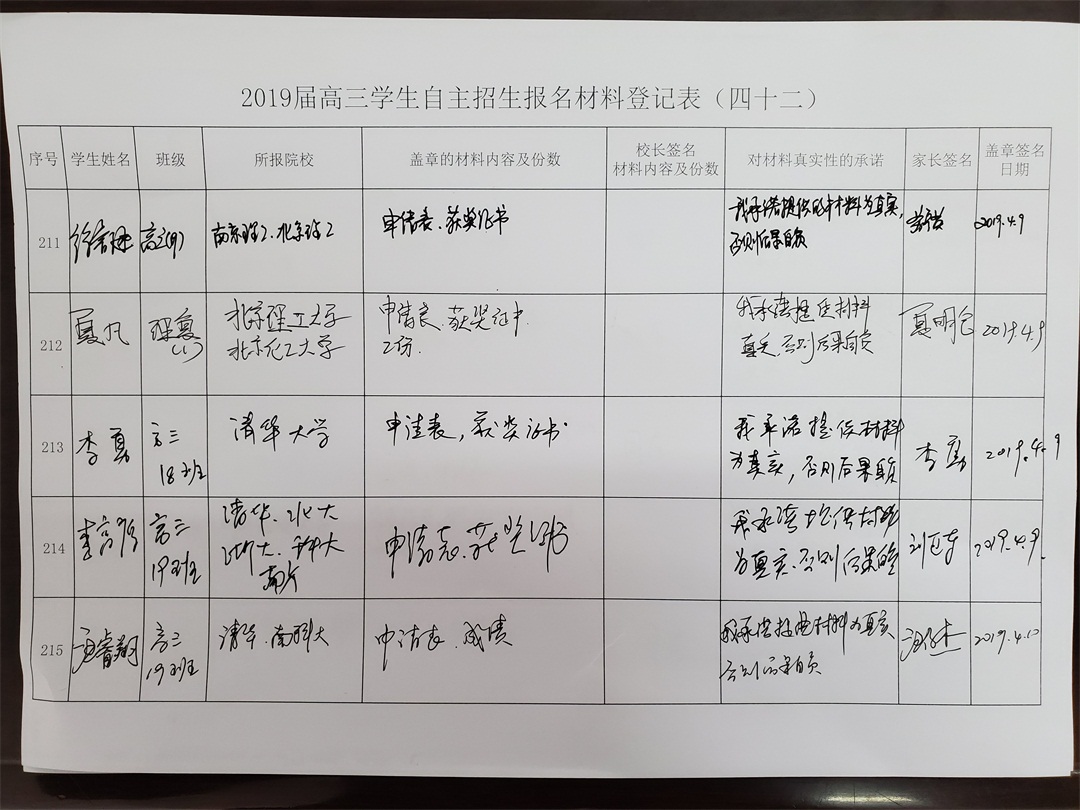 2019届高三学生自主招生报名材料登记表（四十二）
序号 学生姓名 班级 所报院校 盖章的材料内容及份数 校长签名 材料内容及份数 对材料真实性的承诺 家长签名 盖章签名 日期
211 高三(19) 南京理工、北京理工 申请表、获奖证书 我承诺提供的材料为真实， 2019.4.9
否则后果自负
212 夏凡 理复 北京理工大学 申请表、获奖证书 我承诺提供材料 夏明 2019.4.9
(1) 北京化工大学 2份. 真实,否则后果自负
213 李勇 高三 清华大学 申请表，获奖证书 我承诺提供材料 李 2019.4.9
18班 为真实，否则后果自负
214 李高 高三 清华、北大 申请表、获奖证书 我承诺提供材料 刘 2019.4.9.
19班 浙大、科大 为真实、否则后果自负
南大
215 睿翔 高三 清华、南科大 申请表、成绩 我承诺提供材料为真实 汪 2019.4.10
19班 否则后果自负